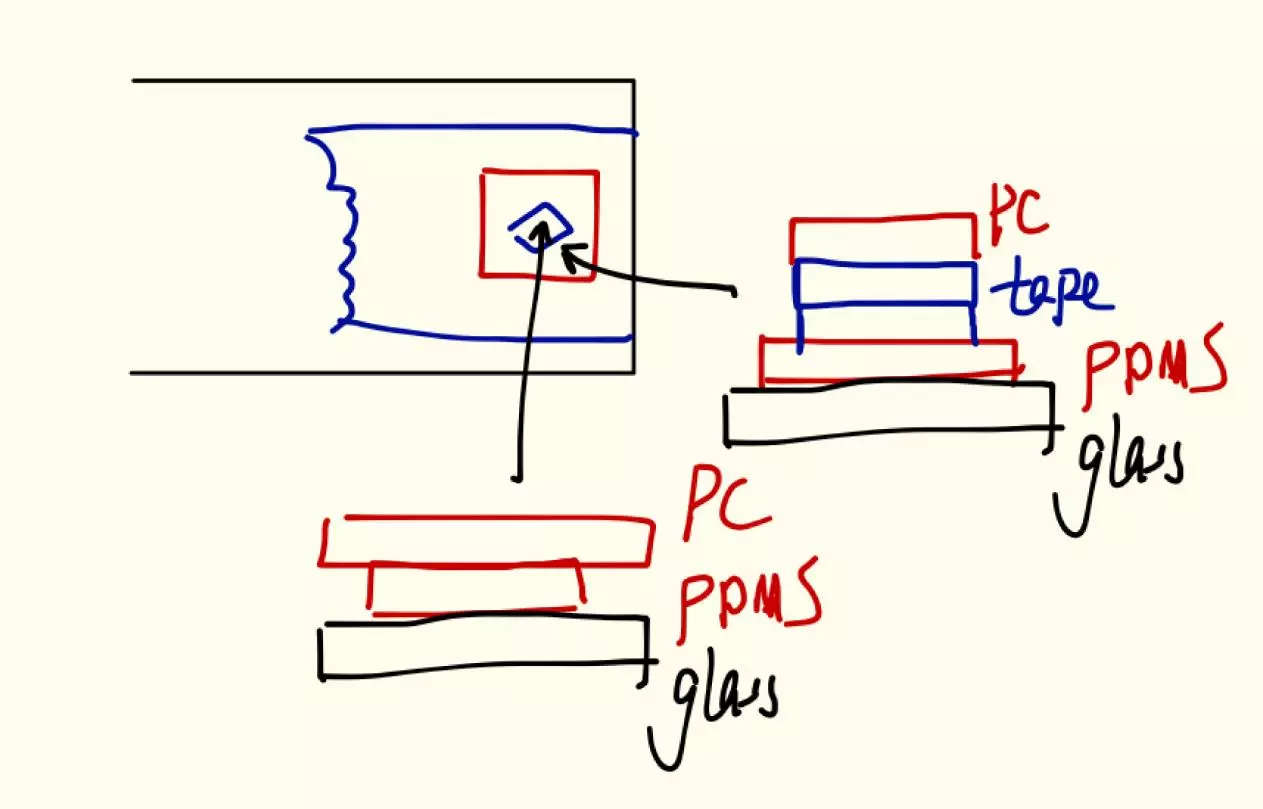 PC
tape
PDMS
glass
PC
PDMS
glass